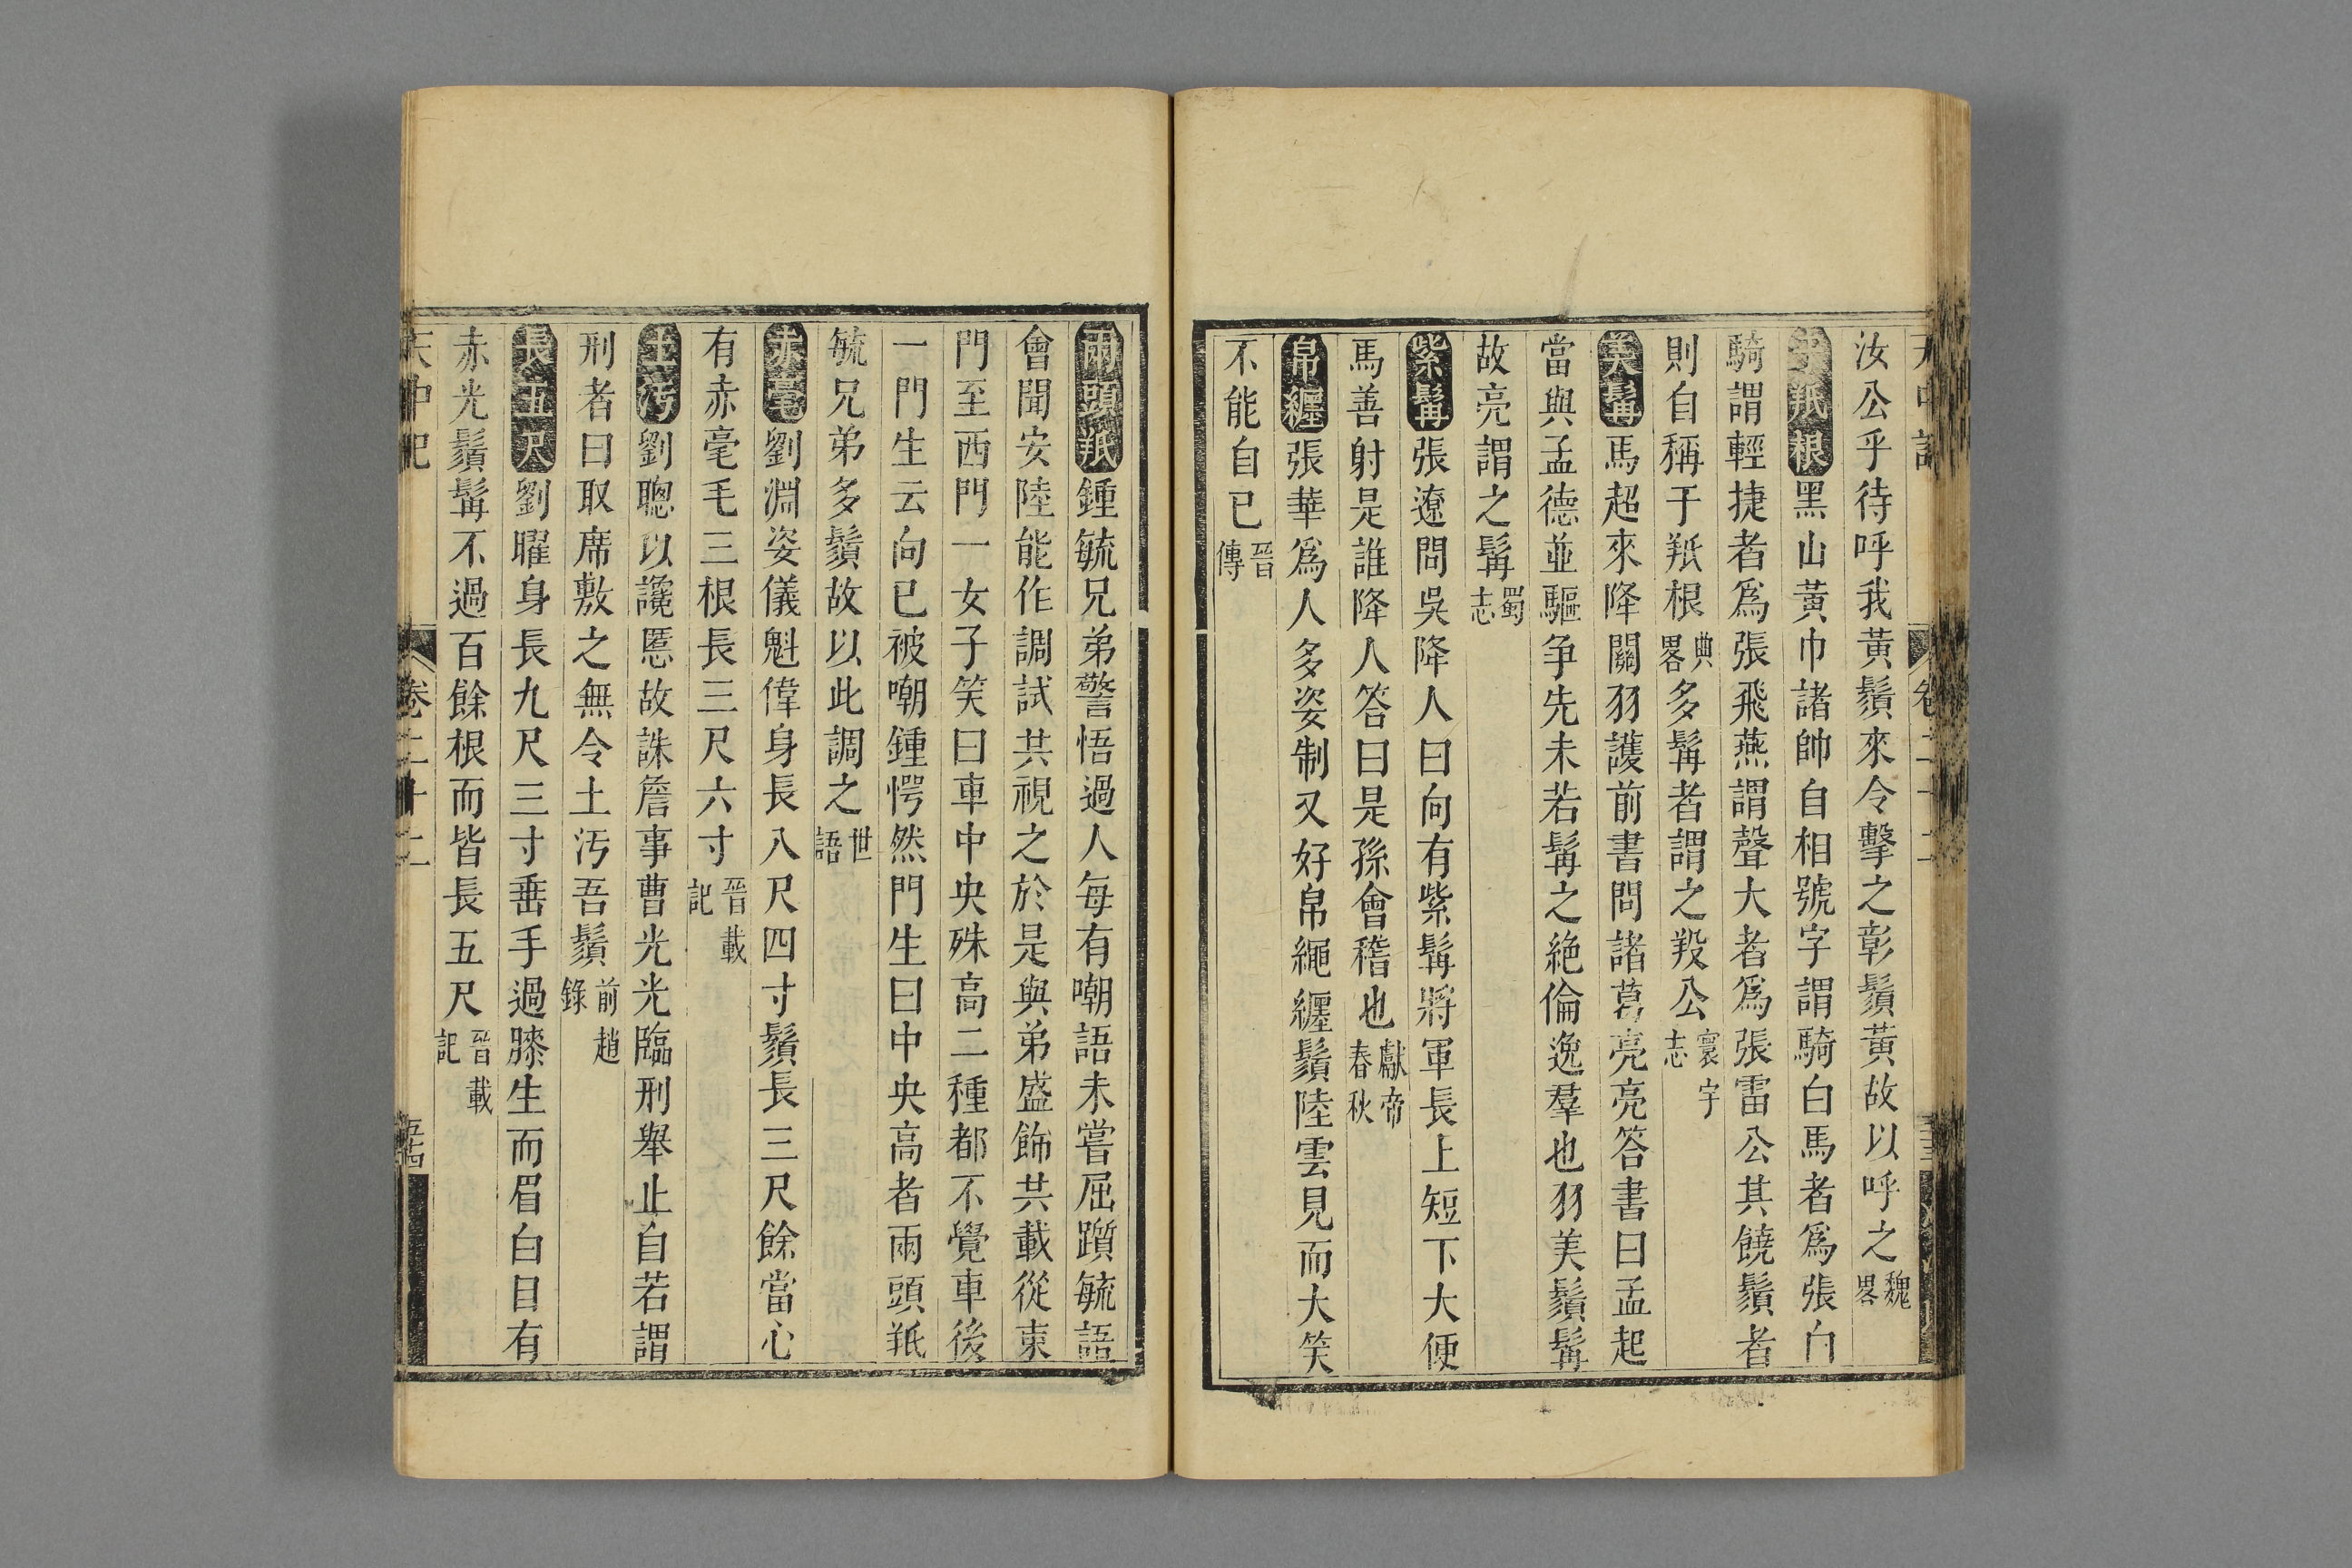 汝公乎待呼我黃鬚來令擊之彰鬚黃故以呼之魏畧
羝根黑山黃巾諸帥自相號字謂騎白馬者爲張白
騎謂輕捷者爲張飛燕謂聲大者爲張雷公其饒鬚者
則自稱于羝根典畧多髯者謂之羖公寰宇志
美髯馬超來降關羽護前書問諸葛亮亮答書曰孟起
當與孟德並驅争先未若髯之絶倫逸羣也羽美鬚髯
故亮謂之髯蜀志
紫髯張遼問吳降人曰向有紫髯將軍長上短下大便
馬善射是誰降人答曰是孫會稽也獻帝春秋
帛纏張華爲人多姿制又好帛繩纏鬚陸雲見而大笑
不能自已晉傳
兩頭羝鍾毓兄弟警悟過人每有嘲語未嘗屈躓毓語
會聞安陸能作調試共視之於是與弟盛飾共載從東
門至西門一女子笑曰車中央殊高二種都不覺車後
一門生云向已被嘲鍾愕然門生曰中央高者兩頭羝
毓兄弟多鬚故以此調之世語
赤毫劉淵姿儀魁偉身長八尺四寸鬚長三尺餘當心
有赤毫毛三根長三尺六寸晉載記
土汚劉聰以讒慝故誅詹事曹光光臨刑舉止自若謂
刑者曰取席敷之無令土汚吾鬚前趙錄
長五尺劉曜身長九尺三寸垂手過膝生而眉白目有
赤光鬚髯不過百餘根而皆長五尺晉載記
天中記 卷二十二 五十四